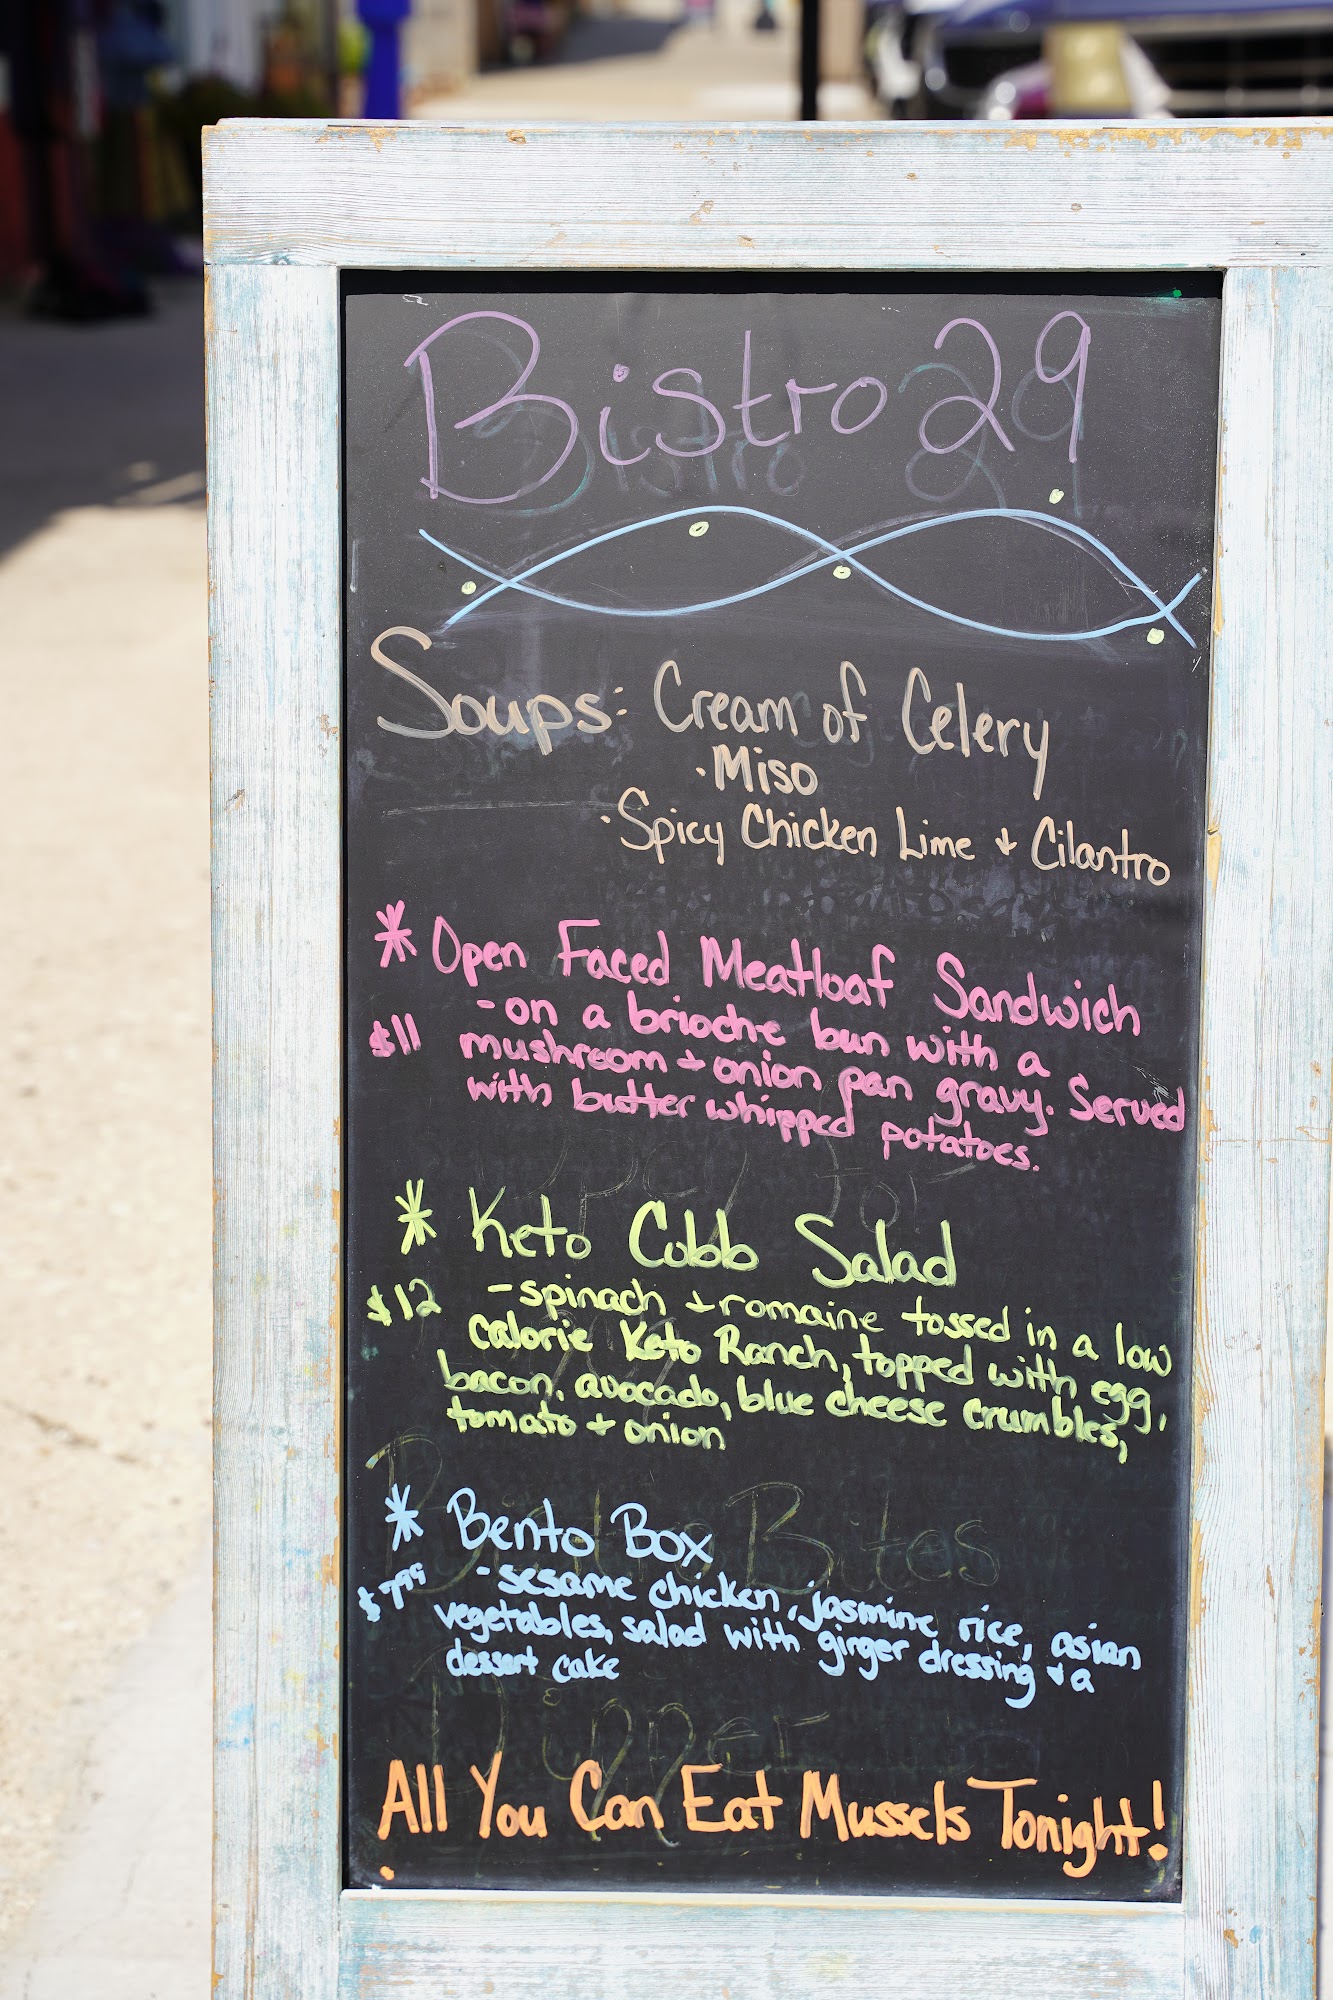 Bistro 29
Soups: Cream of Celery
·Miso
·Spicy Chicken Lime + Cilantro
* Open Faced Meatloaf Sandwich
-on a brioche bun with a
$11 mushroom + onion pan gravy. Served
with butter whipped potatoes.
* Keto Cobb Salad
$12 -spinach + romaine tossed in a low
calorie Keto Ranch, topped with egg,
bacon, avocado, blue cheese crumbles,
tomato + onion
* Bento Box
$7.99 -sesame chicken, jasmine rice, asian
vegetables, salad with ginger dressing + a
dessert cake
All You Can Eat Mussels Tonight!